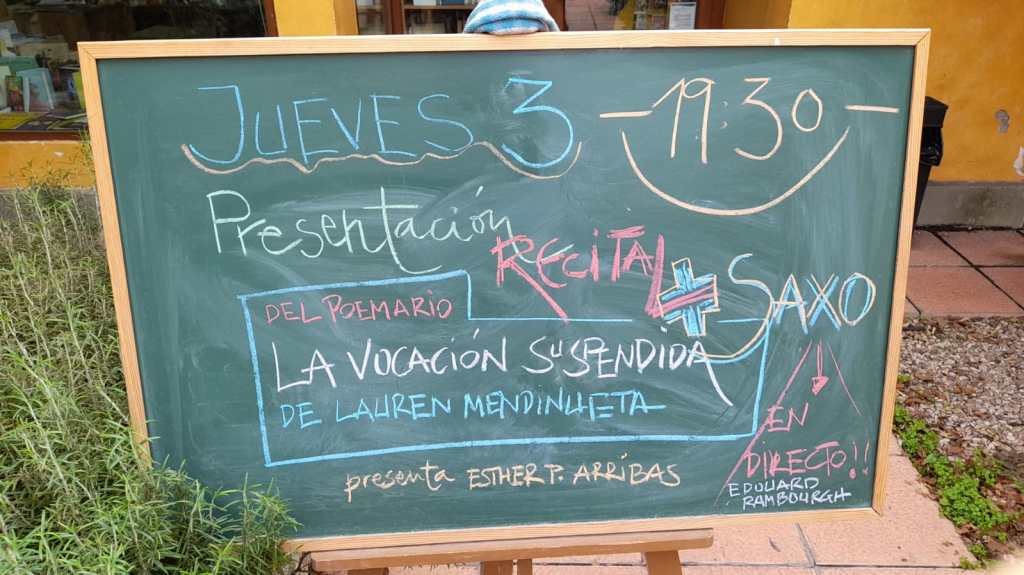 JUEVES 3 -19:30-
Presentación
RECITAL + SAXO
DEL POEMARIO
LA VOCACIÓN SUSPENDIDA
DE LAUREN MENDINUETA
EN
DIRECTO!!
presenta ESTHER P. ARRIBAS
EDOUARD
RAMBOURGH